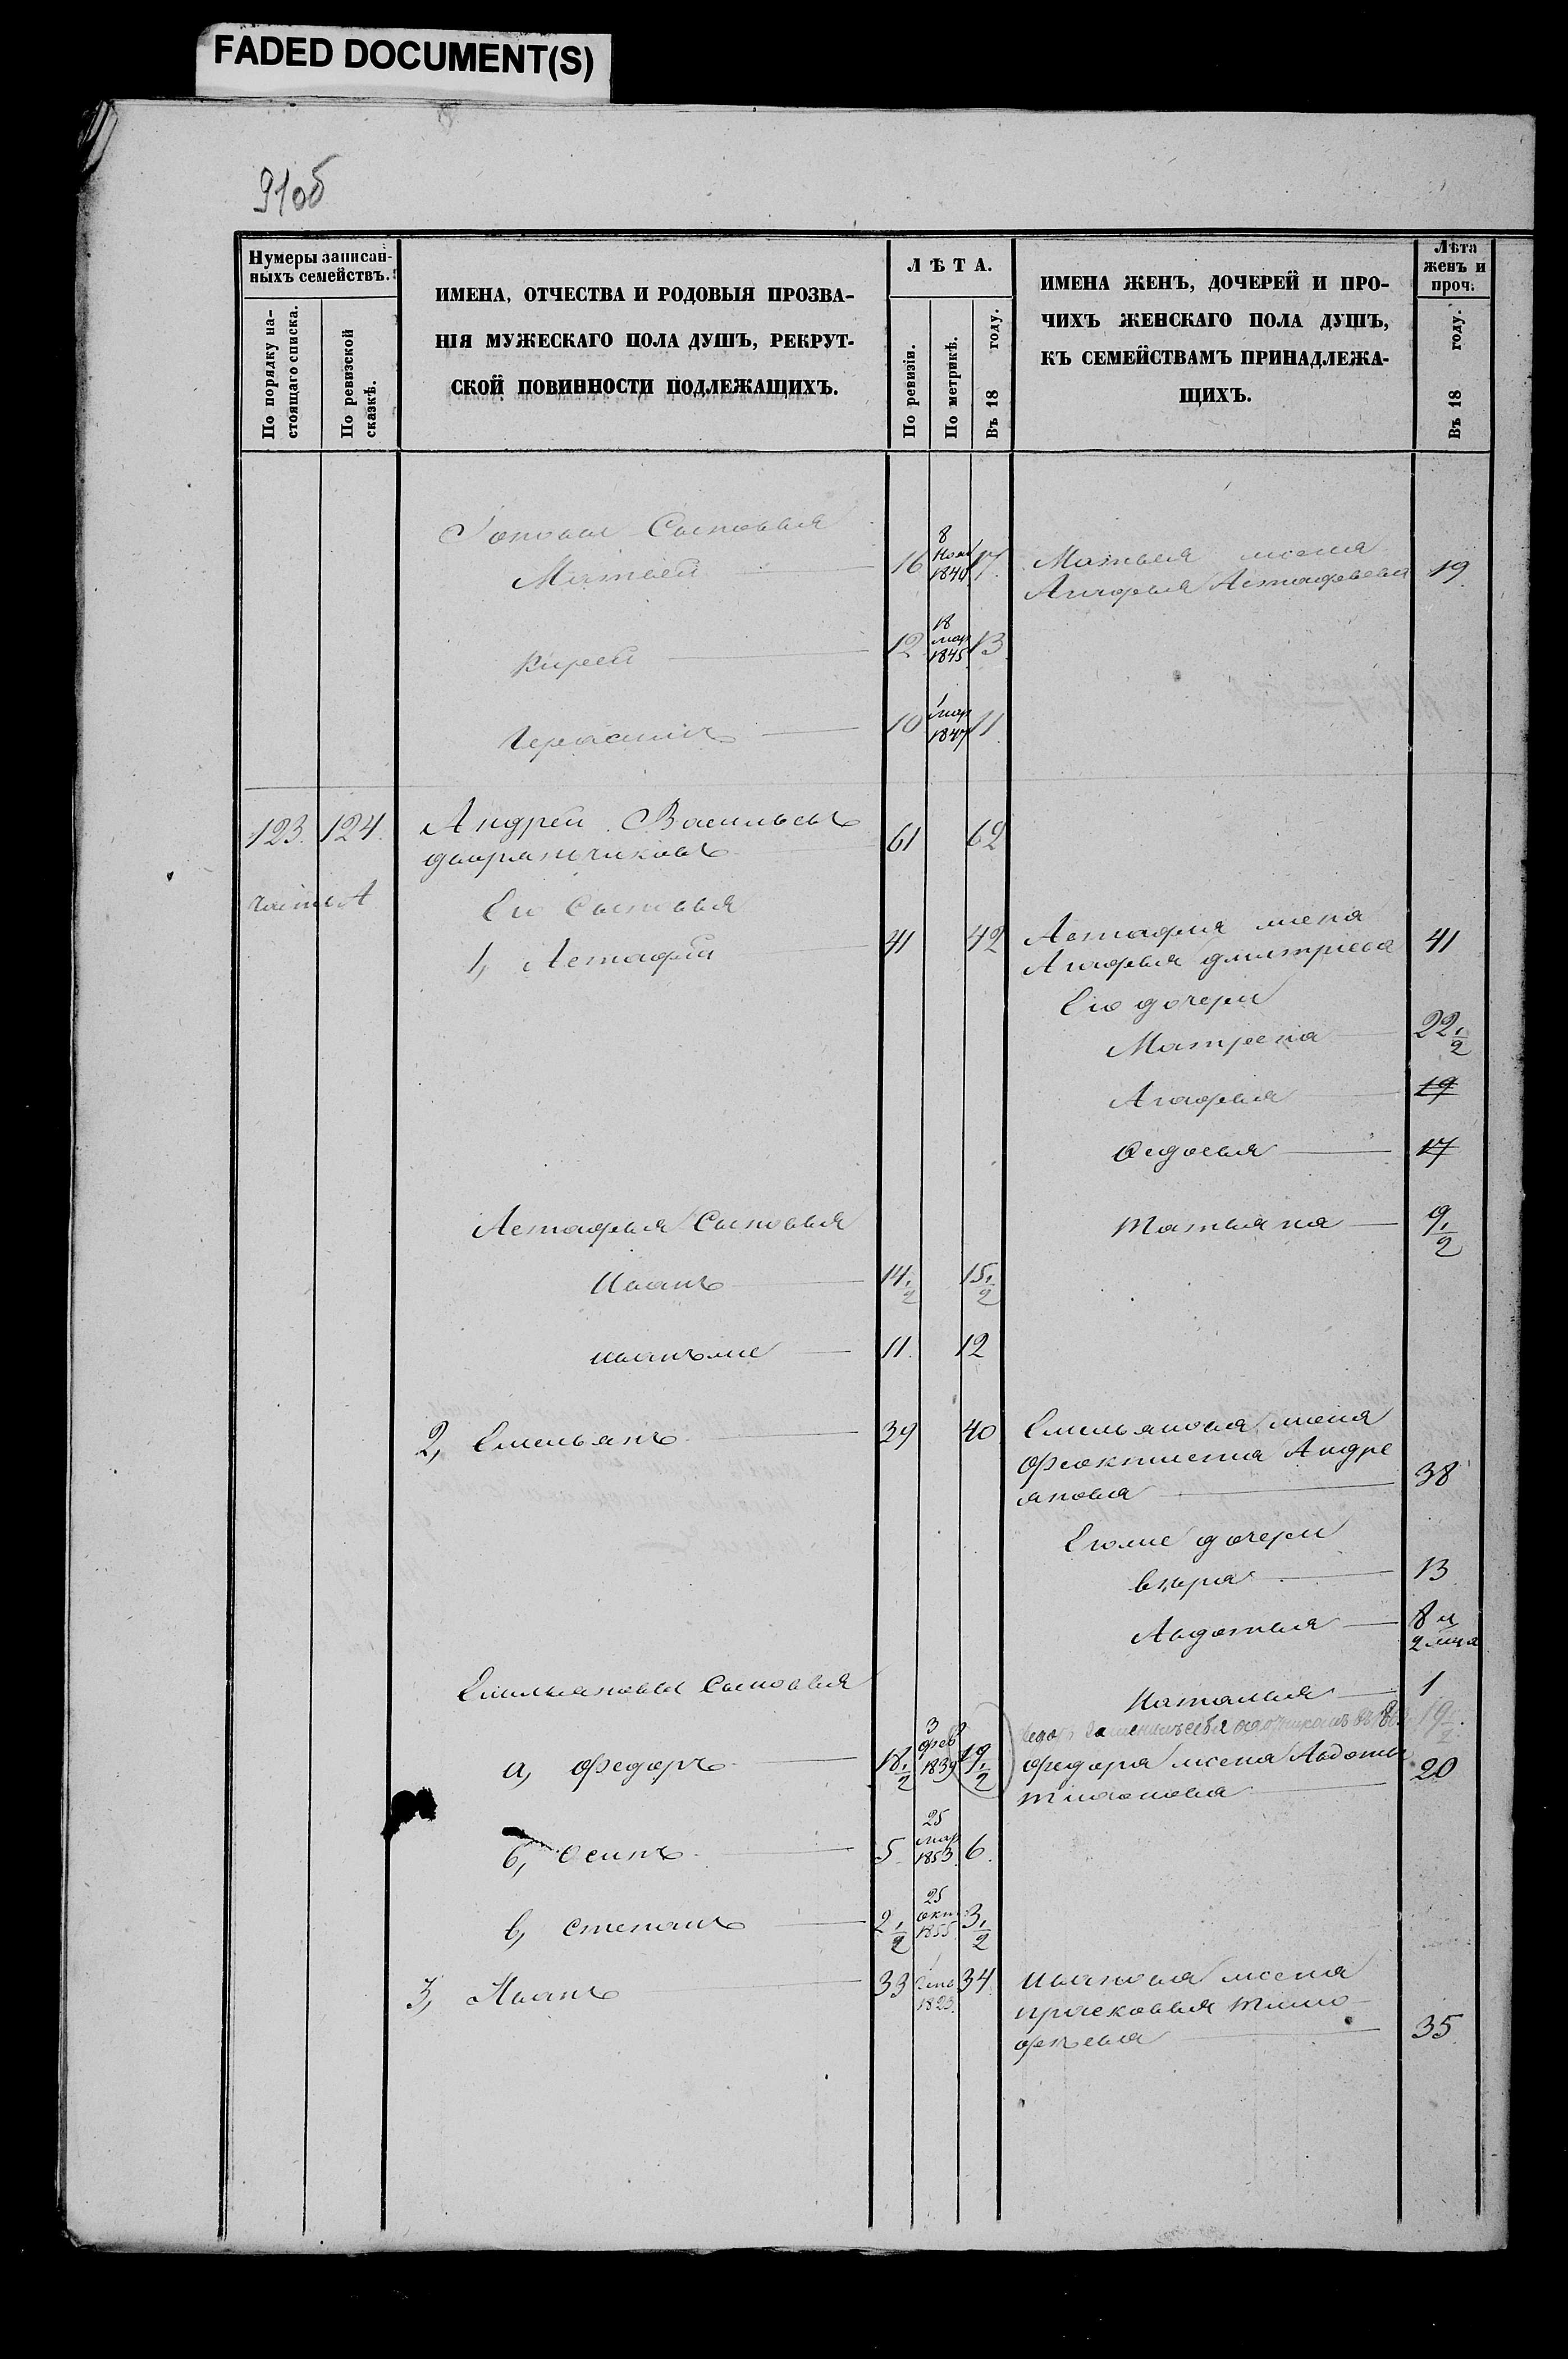 FADED DOCUMENT(S)
91об
Нумеры записан-
ныхъ семействъ.
По порядку на-
стоящаго списка.
По ревизской
сказкѣ.
ИМЕНА, ОТЧЕСТВА И РОДОВЫЯ ПРОЗВА-
НІЯ МУЖЕСКАГО ПОЛА ДУШЪ, РЕКРУТ-
СКОЙ ПОВИННОСТИ ПОДЛЕЖАЩИХЪ.
ЛѢТА.
По ревизіи.
По метрикѣ.
Въ 18 году.
ИМЕНА ЖЕНЪ, ДОЧЕРЕЙ И ПРО-
ЧИХЪ ЖЕНСКАГО ПОЛА ДУШЪ,
КЪ СЕМЕЙСТВАМЪ ПРИНАДЛЕЖА-
ЩИХЪ.
Лѣта
женъ и
проч.
Въ 18 году.
Сыновья
Матвей 16 8 Нояб 1840 17
Матвея жена
Агафья Астафьева 19
Кирей 12 18 мар 1845 13
Герасимъ 10 1 мар 1847 11
123. 124. Андрей Васильевъ
61 62
части А
Его Сыновья
1, Астафий 41 42
Астафия жена
Агафья дмитриева 41
Его дочери
Матрена 22 1/2
Агафья 19
Федосья 17
Астафья Сыновья
Татьяна 9 1/2
Иванъ 14 1/2 15 1/2
иванъже 11 12
2, Емельянъ 39 40
Емельянова жена
Феоктиста Андре
янова 38
Егоже дочери
вѣра 13
Авдотья 8 и 2 мца
Емельяновы Сыновья
Наталья 1
19 1/2
а, Федоръ 18 1/2 3 фев 1839 19 1/2
Федора жена Авдотья
Тихонова 20
б, Осипъ 5 25 мар 1853 6
в, Степанъ 2 1/2 25 окт 1855 3 1/2
3, Иванъ 33 1823 34
Иванова жена
прасковья Тимо-
фѣева 35